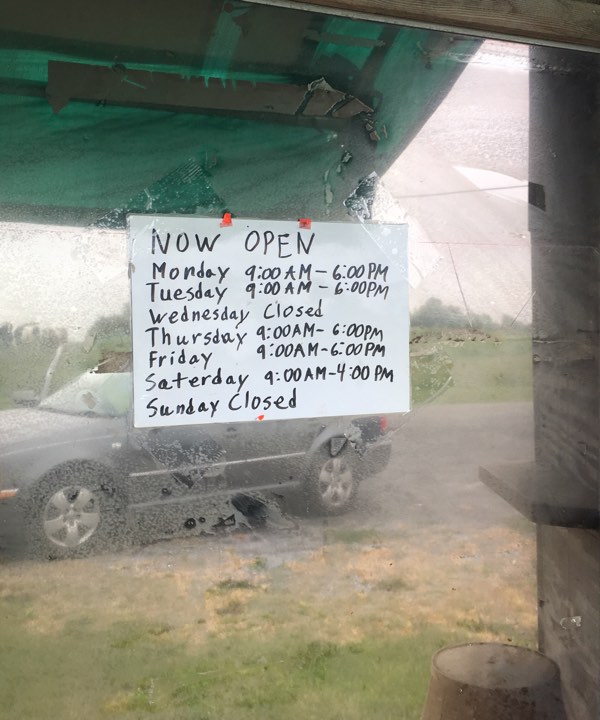 NOW OPEN
Monday 9:00 AM - 6:00 PM
Tuesday 9:00 AM - 6:00PM
Wednesday Closed
Thursday 9:00AM- 6:00PM
Friday 9:00AM-6:00 PM
Saterday 9:00AM-4:00 PM
Sunday Closed